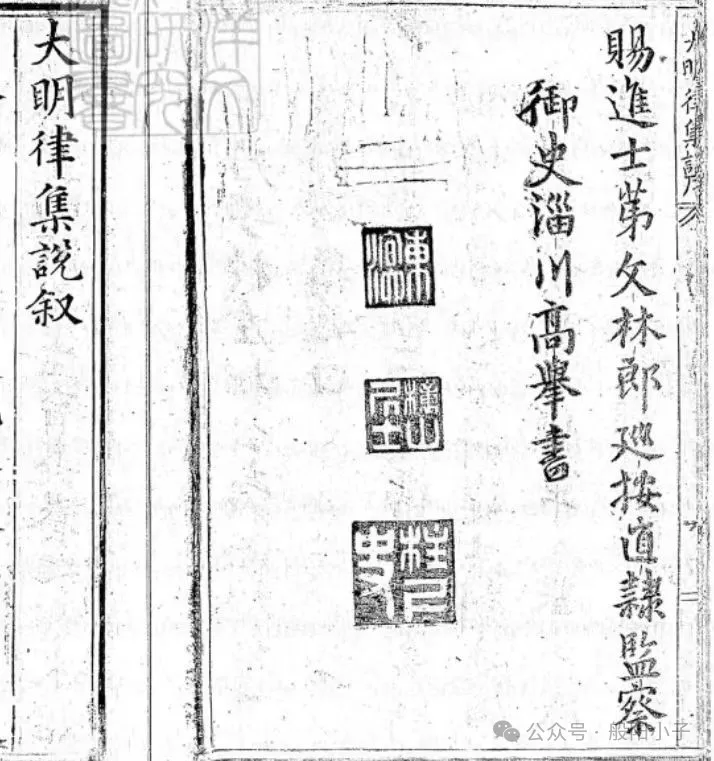 大明律集說
賜進士第文林郎巡按直隸監察
御史淄川高舉書
大明律集說叙
公众号
小子